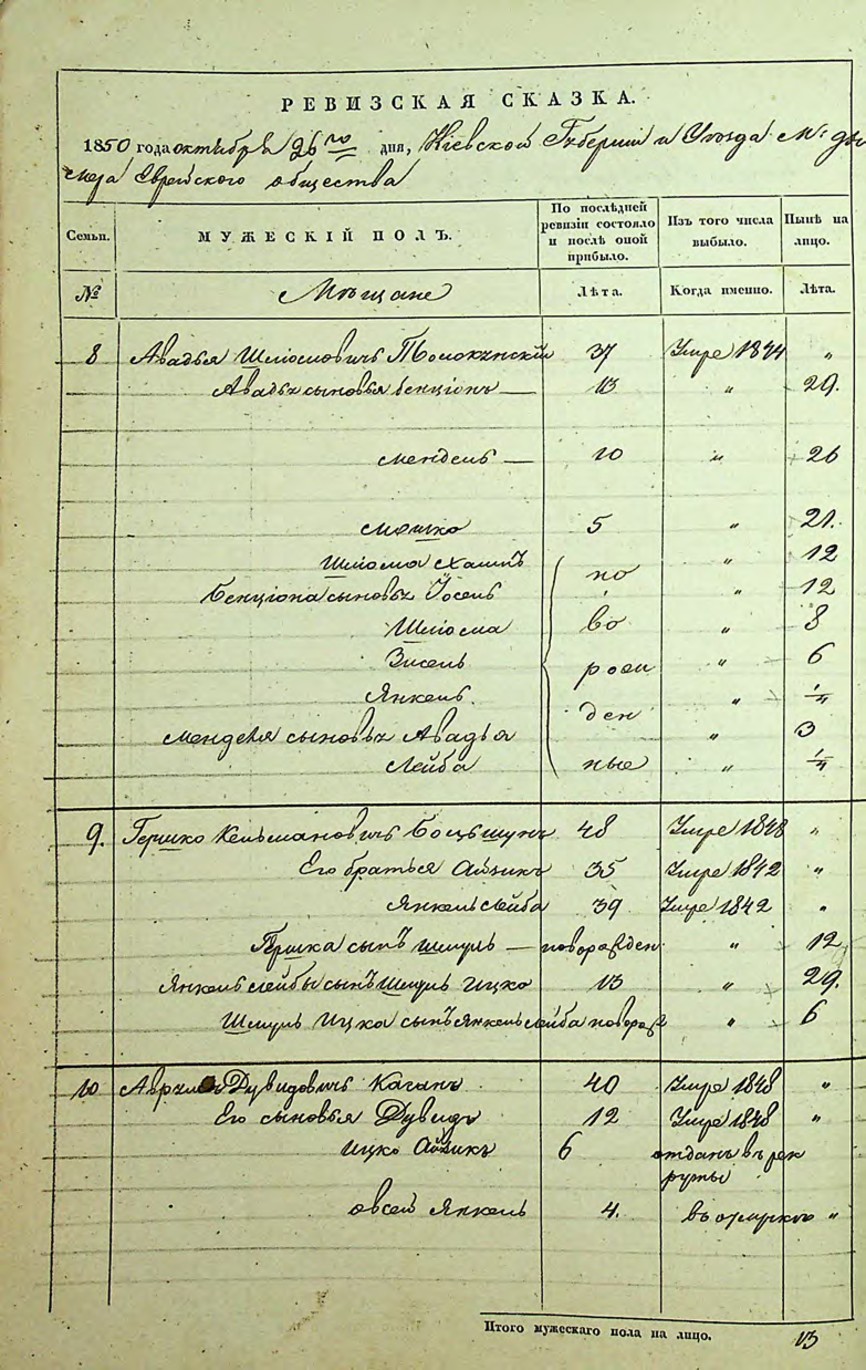 РЕВИЗСКАЯ СКАЗКА.
1850 года октября 26го дня, Кіевской Губерніи и Уѣзда М.
Еврейского общества
Семьи. МУЖЕСКІЙ ПОЛЪ. По послѣдней ревизіи состояло и послѣ оной прибыло. Изъ того числа выбыло. Нынѣ на лицо.
№ Мѣщане Лѣта. Когда именно. Лѣта.
8 Авадья Шліомовичъ 37 Умре 1844 "
Авадьи сыновья Бенціонъ — 13 " 29.
Мендель — 10 " 26
Мошко 5 " 21.
Шліома Хаимъ " 12
Бенціона сыновья Іосель но " 12
Шліома во " 8
Зисель рож " 6
Янкель ден " 1/4
Менделя сыновья Авадья " 3
Лейба ные " 1/4
9. Гершко Кельмановичъ 48 Умре 1848 "
Его братья Айзикъ 35 Умре 1842 "
Янкель Лейба 39 Умре 1842 "
Гершка сынъ Шмуль — новорожден " 12
Янкель Лейбы сынъ Шмуль Ицко 13 " 29.
Шмуль Ицка сынъ Янкель Лейба новорож " 6
10 Аврумъ Дувидовичъ Каганъ 40 Умре 1848 "
Его сыновья Дувидъ 12 Умре 1848 "
Ицко Айзикъ 6 отданъ въ рек
руты
Овсей Янкель 4. въ отлучке "
Итого мужескаго пола на лицо. 13